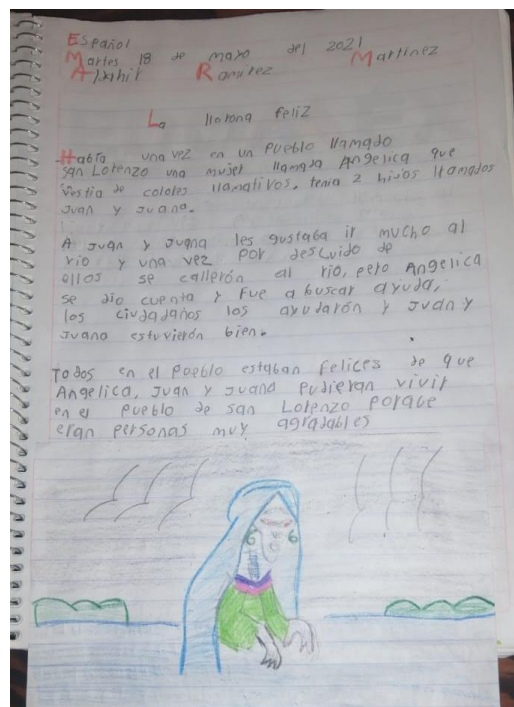 Español
Martes 18 de mayo del 2021
Ramirez Martinez
La llorona feliz
Había una vez en un Pueblo llamado
san Lorenzo una mujer llamada Angelica que
vestia de colores llamativos. tenia 2 hijos llamados
Juan y Juana.
A Juan y Juana les gustaba ir mucho al
rio y una vez por descuido de
ellos se callerón al rio, pero Angelica
se dio cuenta y fue a buscar ayuda,
los ciudadanos los ayudarón y Juan y
Juana estuvierón bien.
Todos en el Pueblo estaban felices de que
Angelica, Juan y Juana Pudieran vivir
en el pueblo de san Lorenzo porque
eran personas muy agradables